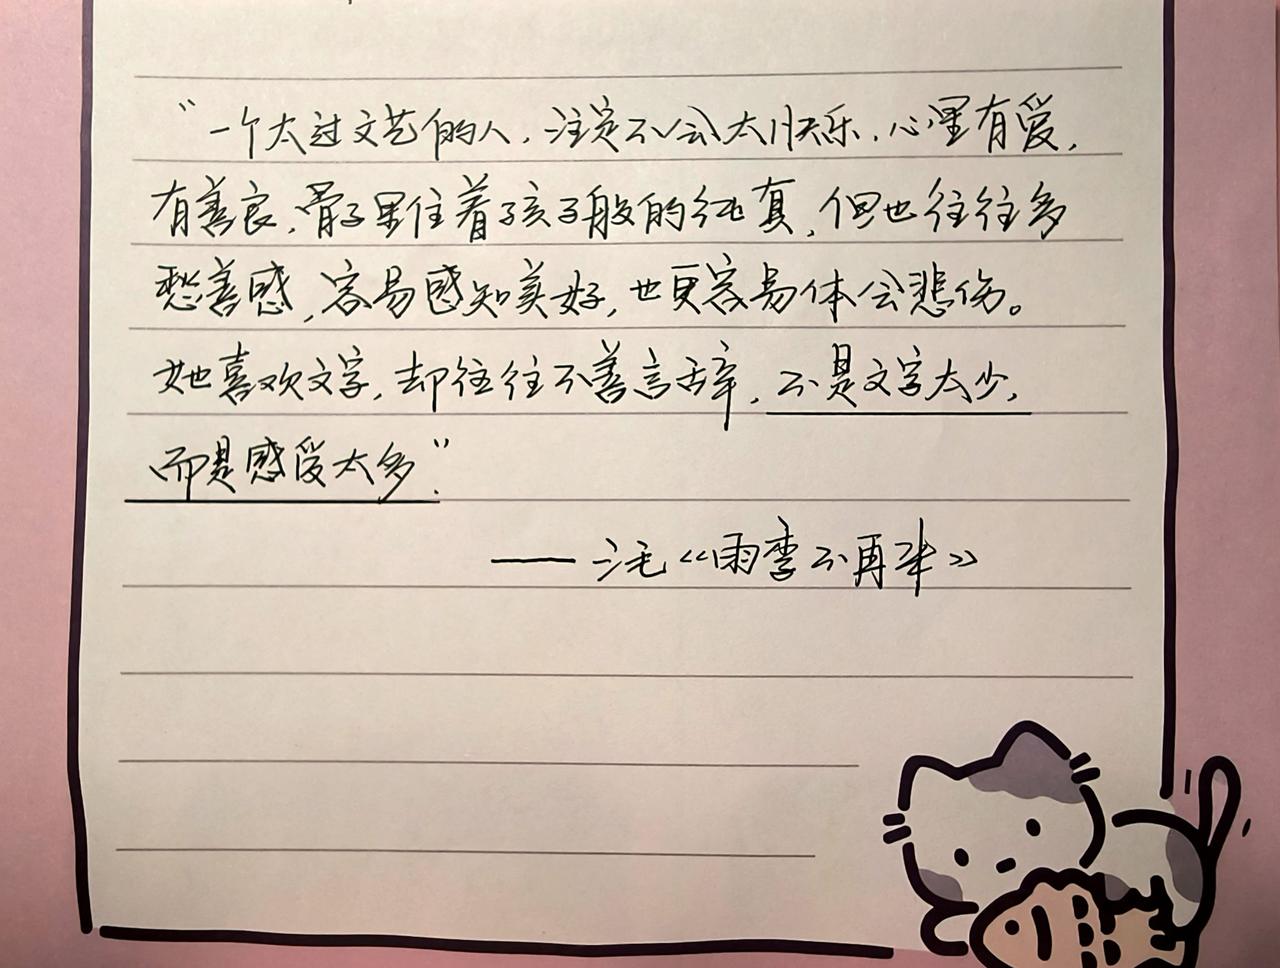 “一个太过文艺的人，注定不会太快乐，心里有爱，
有善良，骨子里住着孩子般的纯真，但也往往多
愁善感，容易感知美好，也更容易体会悲伤。
她喜欢文字，却往往不善言辞，不是文字太少，
而是感受太多”.
——三毛《雨季不再来》